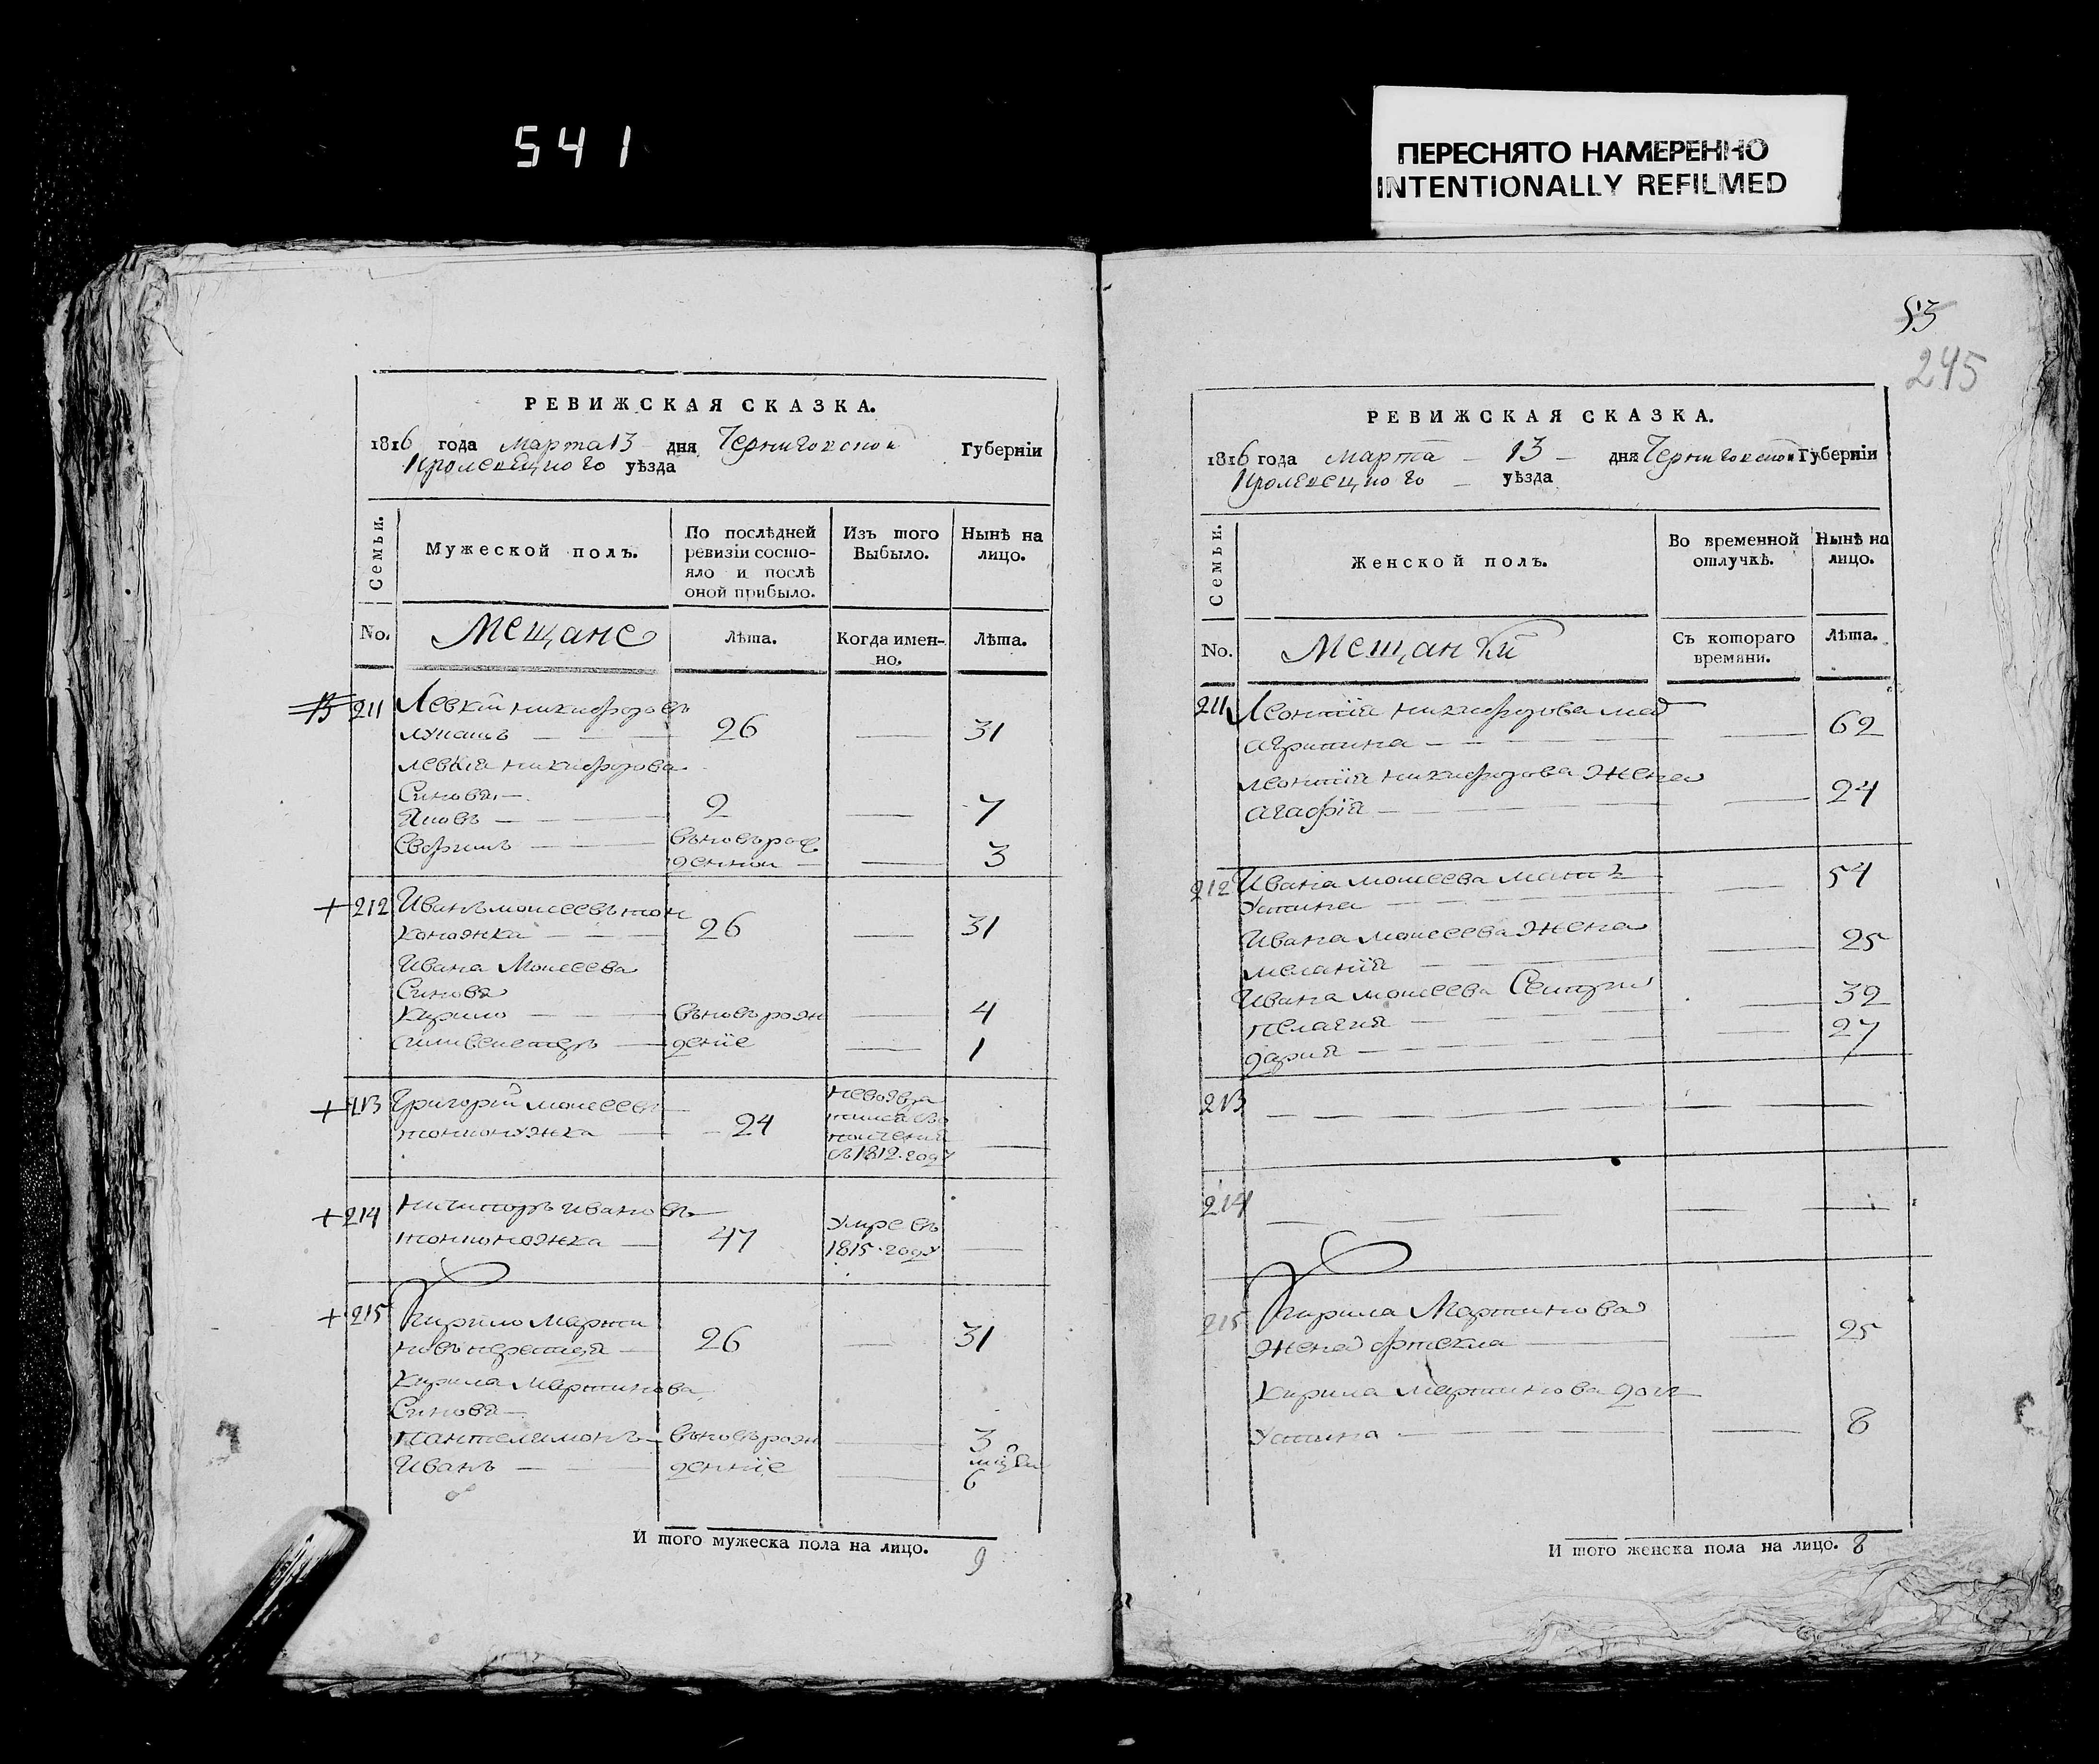 541
ПЕРЕСНЯТО НАМЕРЕННО
INTENTIONALLY REFILMED
РЕВИЖСКАЯ СКАЗКА.
1816 года Марта 13 дня Черниговской Губерніи
Кролевецкого уѣзда
Семьи.
Мужеской полъ.
По послѣдней ревизіи состояло и послѣ оной прибыло.
Изъ того Выбыло.
Нынѣ на лицо.
No.
Мещане
Лѣта.
Когда именно.
Лѣта.
211 Левкій никифоровъ
26 — 31
левкія никифорова
Синовя —
Яковъ — 2 — 7
Ефримъ — вьновь рож
денной — 3
212 Иванъ моисеевъ тон
коножка — 26 — 31
Ивана Моисеева
Синовя
Кирило — вьновь рож — 4
силивестръ — деніе — 1
213 Григорій моисеевъ
тонконожка — 24
в 1812 году —
214 Никиторъ ивановъ
тонконожка — 47
Умре въ
1815 году —
215 Кирило Марти
новъ — 26 — 31
Кирила Мартинова
Синовя —
пантелимонъ — вьновь рож — 3
Иванъ — денніе — 6
И того мужеска пола на лицо. 9
53
245
РЕВИЖСКАЯ СКАЗКА.
1816 года Марта 13 дня Черниговской Губерніи
Кролевецкого уѣзда
Семьи.
Женской полъ.
Во временной отлучкѣ.
Нынѣ на лицо.
No.
Мещанки
Съ котораго времяни.
Лѣта.
211 Леонтія никифорова мат
агрипина — 62
леонтія никифорова жена
агафія — 24
212 Ивана моисеева мать
Устина — 54
Ивана моисеева жена
меланія — 25
Ивана моисеева Сестри
пелагия — 32
дария — 27
213
214
215 Кирила Мартинова
жена фтекла — 25
Кирила мартинова доч
Устина — 8
И того женска пола на лицо. 8